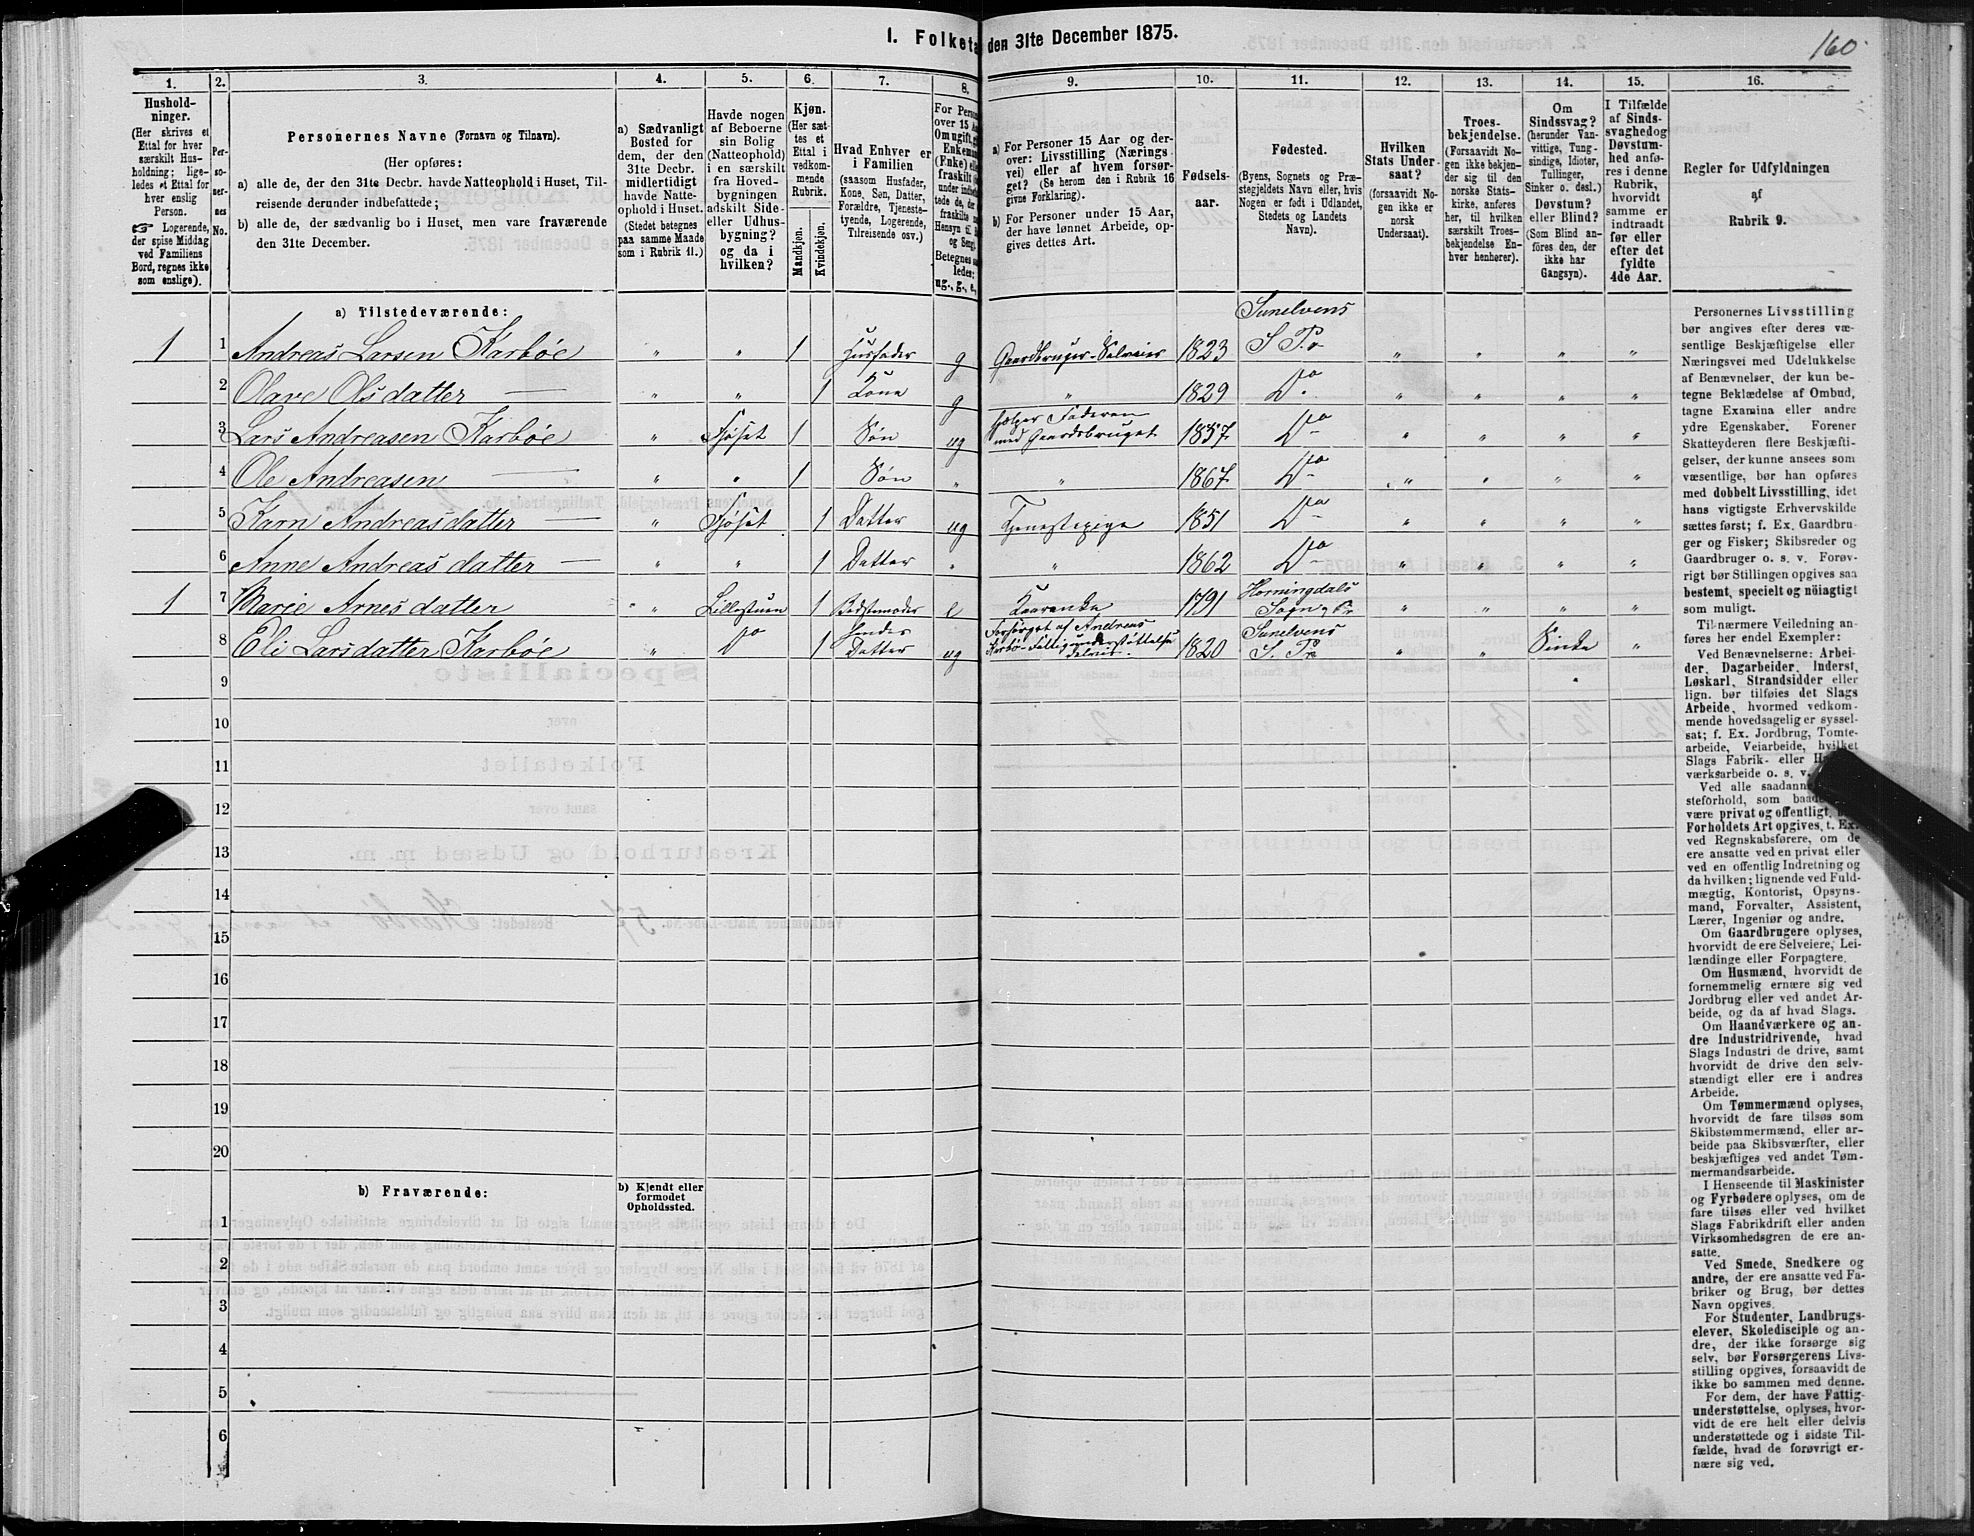 1. Folketa den 31te December 1875.
160
1. 2. 3. 4. 5. 6. 7. 8. 9. 10. 11. 12. 13. 14. 15. 16.
Hushold-
ninger.
(Her skrives et
Ettal for hver
særskilt Hus-
holdning; lige-
ledes et Ettal for
hver enslig
Person.
☞ Logerende,
der spise Middag
ved Familiens
Bord, regnes ikke
som enslige).
Per-
so-
ner-
nes
No.
Personernes Navne (Fornavn og Tilnavn).
(Her opføres:
a) alle de, der den 31te Decbr. havde Natteophold i Huset, Til-
reisende derunder indbefattede;
b) alle de, der sædvanlig bo i Huset, men vare fraværende
den 31te December.
a) Sædvanligt
Bosted for
dem, der den
31te Decbr.
midlertidigt
havde Natte-
ophold i Huset.
(Stedet betegnes
paa samme Maade
som i Rubrik 11.)
Havde nogen
af Beboerne
sin Bolig
(Natteophold)
i en særskilt
fra Hoved-
bygningen
adskilt Side-
eller Udhus-
bygning?
og da i
hvilken?
Kjøn.
(Her sæt-
tes et
Ettal i
vedkom-
mende
Rubrik.
Mandkjøn.
Kvindekjøn.
Hvad Enhver er
i Familien
(saasom Husfader,
Kone, Søn, Datter,
Forældre, Tjeneste-
tyende, Logerende,
Tilreisende osv.)
For Person
over 15 Aa
Om ugift, gi
Enkema
(Enke) elle
fraskilt
Betegnes saa
ledes:
ug., g., e.,
a) For Personer 15 Aar og der-
over: Livsstilling (Nærings-
vei) eller af hvem forsør-
get? (Se herom den i Rubrik 16
givne Forklaring).
b) For Personer under 15 Aar,
der have lønnet Arbeide, op-
gives dettes Art.
Fødsels-
aar.
Fødested.
(Byens, Sognets og Præ-
stegjeldets Navn eller, hvis
Nogen er født i Udlandet,
Stedets og Landets
Navn).
Hvilken
Stats Under-
saat?
(forsaavidt No-
gen ikke er
norsk
Undersaat).
Troes-
bekjendelse.
(Forsaavidt No-
gen ikke bekjen-
der sig til den
norske Stats-
kirke, anføres
her, til hvilken
særskilt Troes-
bekjendelse En-
hver henhører).
Om
Sindssvag?
(herunder Van-
vittige, Tung-
sindige, Idioter,
Tullinger,
Sinker o. desl.)
Døvstum?
eller Blind?
(Som Blind an-
føres den, der
ikke har
Gangsyn).
I Tilfælde
af Sinds-
svaghed og
Døvstum-
hed anfø-
res i denne
Rubrik,
hvorvidt
samme er
indtraadt
før eller
efter det
fyldte
4de Aar.
Regler for Udfyldningen
af
Rubrik 9.
a) Tilstedeværende:
1 1 Andreas Larsen Karbøe " " 1 Husfader g Gaardbruger-Selveier 1823 Sunelvens S Pr " " " "
2 Olave Olsdatter — " " 1 Kone g " 1829 Do " " " "
3 Lars Andreasen Karbøe " Fjøset 1 Søn ug hjelper Faderen med Gaardsbruget 1857 Do " " " "
4 Ole Andreasen — " " 1 Søn " " 1867 Do " " " "
5 Karn Andreasdatter — " Fjøset 1 Datter ug Tjenestepige 1851 Do " " " "
6 Anne Andreasdatter — " " 1 Datter " " 1862 Do " " " "
1 7 Marie Arnesdatter " Lillestuen 1 Bedstemoder e Kaarenke 1791 Horningdals Sogn, Pr " " " "
8 Eli Larsdatter Karbøe " Do 1 Hendes Datter ug Forsørget af Andreas Karbø-Fattigunderstøttelse 1820 Sunelvens S. Pr " " Sinke "
9
10
11
12
13
14
15
16
17
18
19
20
b) Fraværende:
b) Kjendt eller
formodet
Opholdssted.
1
2
3
4
5
6
Personernes Livsstilling
bør angives efter deres væ-
sentlige Beskjæftigelse eller
Næringsvei med Udelukkelse
af Benævnelser, der kun be-
tegne Beklædelse af Ombud,
tagne Examina eller andre
ydre Egenskaber. Forener
Skatteyderen flere Beskjæfti-
gelser, der kunne ansees som
væsentlige, bør han opføres
med dobbelt Livsstilling, idet
hans vigtigste Erhvervskilde
sættes først; f. Ex. Gaardbru-
ger og Fisker; Skibsreder og
Gaardbruger o. s. v. Forøv-
rigt bør Stillingen opgives saa
bestemt, specielt og nöiagtigt
som muligt.
Til nærmere Veiledning an-
føres her endel Exempler:
Ved Benævnelserne: Arbei-
der, Dagarbeider, Inderst,
Løskarl, Strandsidder eller
lign. bør tilføies det Slags
Arbeide, hvormed vedkom-
mende hovedsagelig er syssel-
sat; f. Ex. Jordbrug, Tomte-
arbeide, Veiarbeide, hvilket
Slags Fabrik- eller H
værksarbeide o. s. v.
Ved alle saadann
steforhold, som baad
være privat og offentligt,
Forholdets Art opgives, t. Ex.
ved Regnskabsførere, om de
ere ansatte ved en privat eller
ved en offentlig Indretning og
da hvilken; lignende ved Fuld-
mægtig, Kontorist, Opsyns-
mand, Forvalter, Assistent,
Lærer, Ingeniør og andre.
Om Gaardbrugere oplyses,
hvorvidt de ere Selveiere, Lei-
lændinge eller Forpagtere.
Om Husmænd, hvorvidt de
fornemmelig ernære sig ved
Jordbrug eller ved andet Ar-
beide, og da af hvad Slags.
Om Haandværkere og an-
dre Industridrivende, hvad
Slags Industri de drive, samt
hvorvidt de drive den selv-
stændigt eller ere i andres
Arbeide.
Om Tømmermænd oplyses,
hvorvidt de fare tilsøs som
Skibstømmermænd, eller ar-
beide paa Skibsværfter, eller
beskjæftiges ved andet Tøm-
mermandsarbeide.
I Henseende til Maskinister
og Fyrbødere oplyses, om de
fare tilsøs eller ved hvilket
Slags Fabrikdrift eller anden
Virksomhedsgren de ere an-
satte.
Ved Smede, Snedkere og
andre, der ere ansatte ved Fa-
briker og Brug, bør dettes
Navn opgives.
For Studenter, Landbrugs-
elever, Skoledisciple og an-
dre, der ikke forsørge sig
selv, bør Forsørgerens Livs-
stilling opgives, forsaavidt de
ikke bo sammen med denne.
For dem, der have Fattig-
understøttelse, oplyses, hvor-
vidt de ere helt eller delvis
understøttede og i sidste Til-
fælde, hvad de forøvrigt er-
nære sig ved.